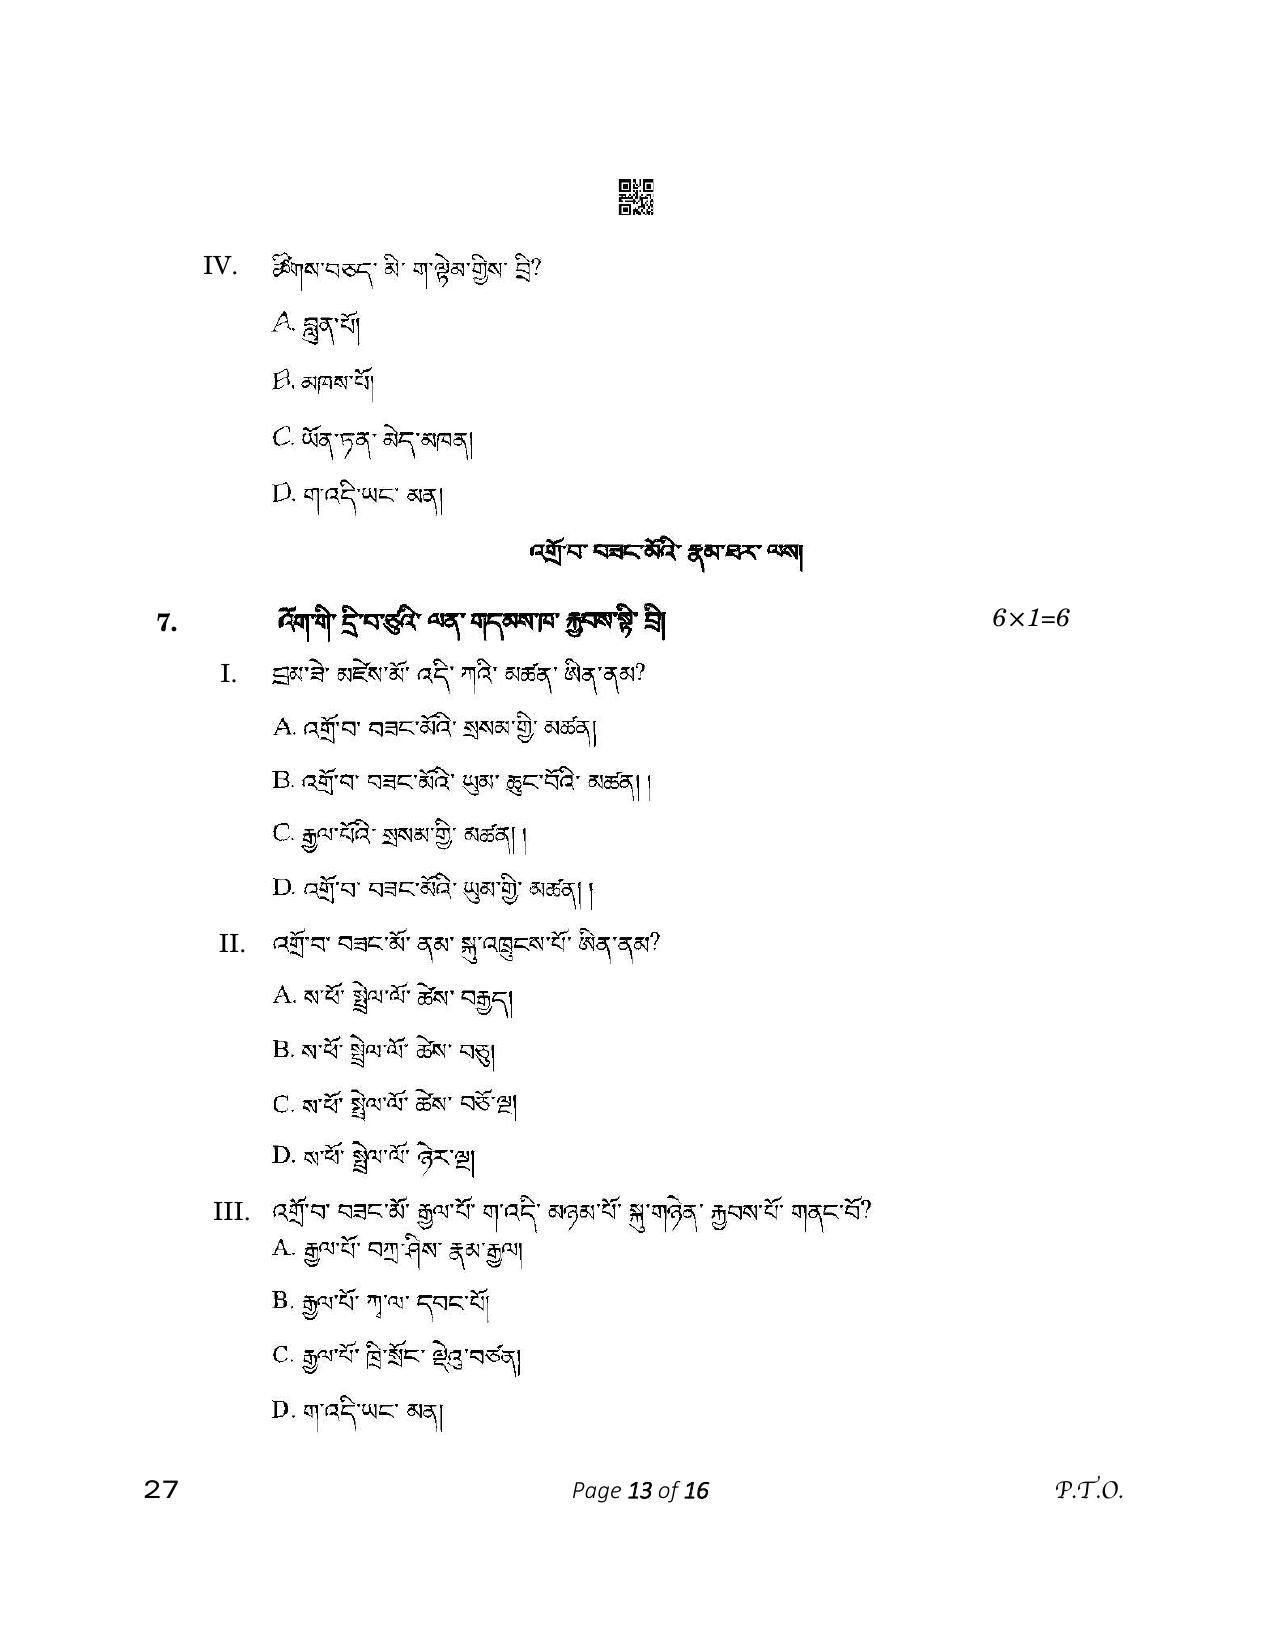 IV. ཚོགས་བཅད་ མི་ ག་ལྟེམ་གྱིས་ བྲི?
A. བླུན་པོ།
B. མཁས་པོ།
C. ཡོན་ཏན་ མེད་མཁན།
D. ག་འདི་ཡང་ མན།
འགྲོ་བ་ བཟང་མོའི་ རྣམ་ཐར་ ལས།
7. འོག་གི་ དྲི་བ་ཙུའི་ ལན་ གདམས་ཁ་ རྐྱབས་སྟི་ བྲི། 6×1=6
I. བྲམ་ཟེ་ མཛེས་མོ་ འདི་ ཀའི་ མཚན་ ཨིན་ནམ?
A. འགྲོ་བ་ བཟང་མོའི་ སྲསམ་གྱི་ མཚན།
B. འགྲོ་བ་ བཟང་མོའི་ ཡུམ་ ཆུང་བོའི་ མཚན། །
C. རྒྱལ་པོའི་ སྲསམ་གྱི་ མཚན། །
D. འགྲོ་བ་ བཟང་མོའི་ ཡུམ་གྱི་ མཚན། །
II. འགྲོ་བ་ བཟང་མོ་ ནམ་ སྐུ་འཁྲུངས་པོ་ ཨིན་ནམ?
A. ས་ཕོ་ སྤྲེལ་ལོ་ ཚེས་ བརྒྱད།
B. ས་ཕོ་ སྤྲེལ་ལོ་ ཚེས་ བཅུ།
C. ས་ཕོ་ སྤྲེལ་ལོ་ ཚེས་ བཅོ་ལྔ།
D. ས་ཕོ་ སྤྲེལ་ལོ་ ཉེར་ལྔ།
III. འགྲོ་བ་ བཟང་མོ་ རྒྱལ་པོ་ ག་འདི་ མཉམ་པོ་ སྐུ་གཉེན་ རྐྱབས་པོ་ གནང་བོ?
A. རྒྱལ་པོ་ བཀྲ་ཤིས་ རྣམ་རྒྱལ།
B. རྒྱལ་པོ་ ཀཱ་ལ་ དབང་པོ།
C. རྒྱལ་པོ་ ཁྲི་སྲོང་ ལྡེའུ་བཙན།
D. ག་འདི་ཡང་ མན།
27 Page 13 of 16 P.T.O.